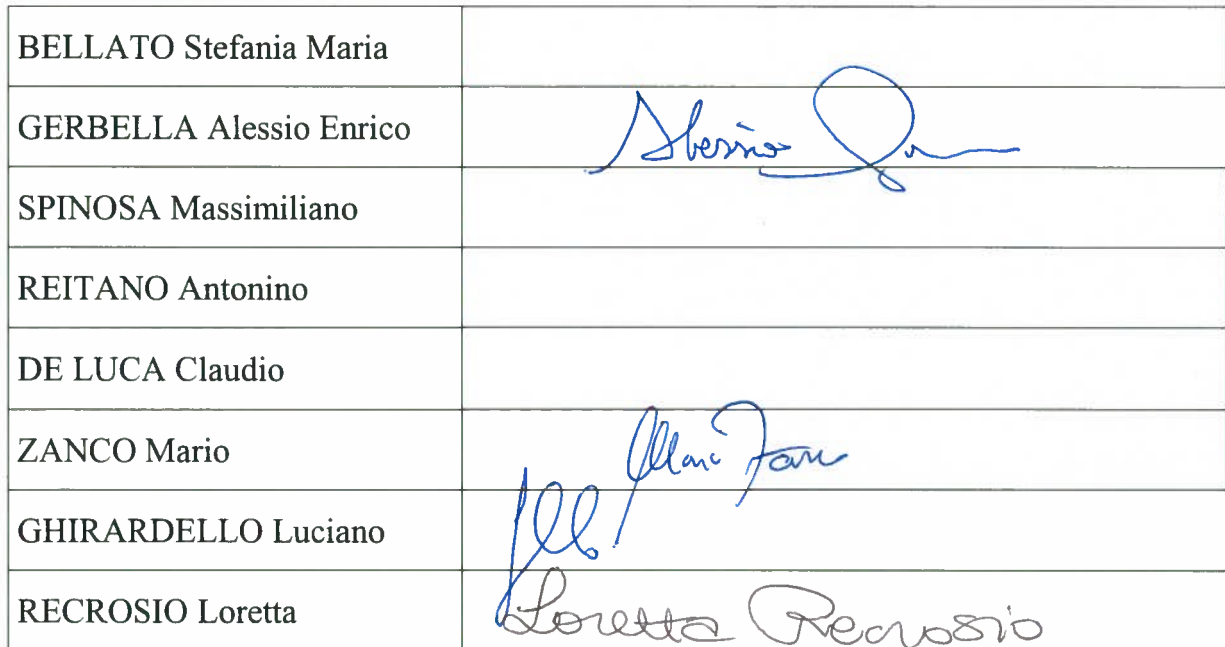 BELLATO Stefania Maria
GERBELLA Alessio Enrico Alessio
SPINOSA Massimiliano
REITANO Antonino
DE LUCA Claudio
ZANCO Mario
GHIRARDELLO Luciano
RECROSIO Loretta Loretta Recrosio